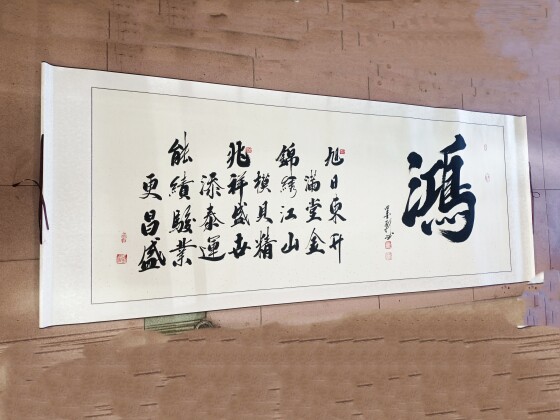 鴻
旭日東升
滿堂金
錦綉江山
模具精
兆祥盛世
添泰運
能績駿業
更昌盛